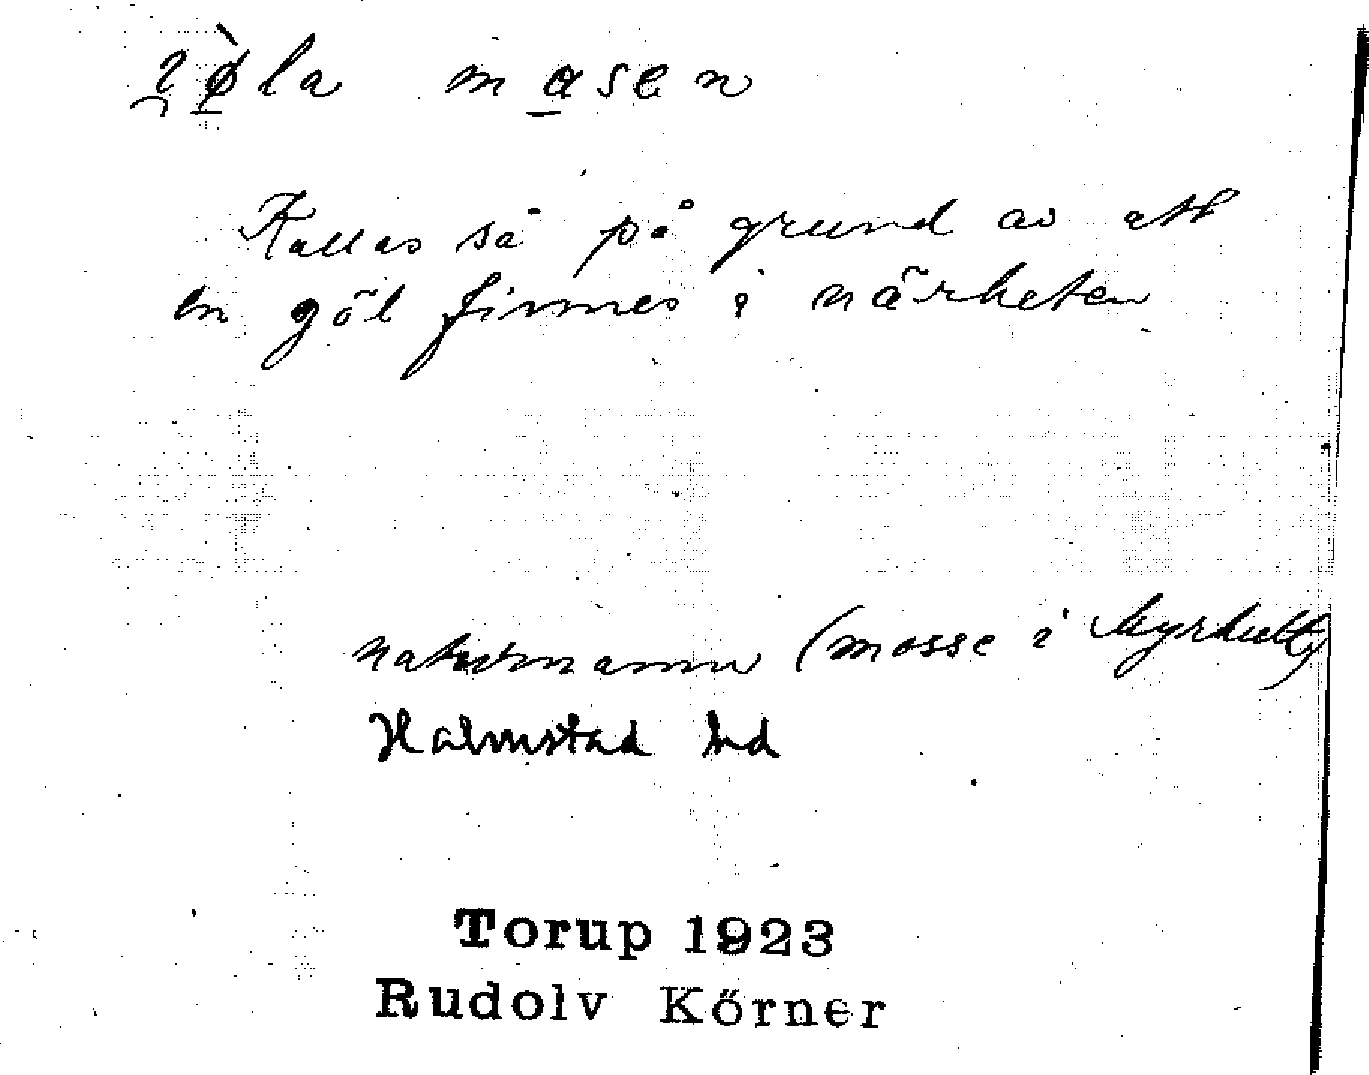 jø̀la masen
Kallas så på grund av att
en göl finnes i närheten
naturnamn (mosse i Skyrhult)
Halmstad hd
Torup 1923
Rudolv Körner